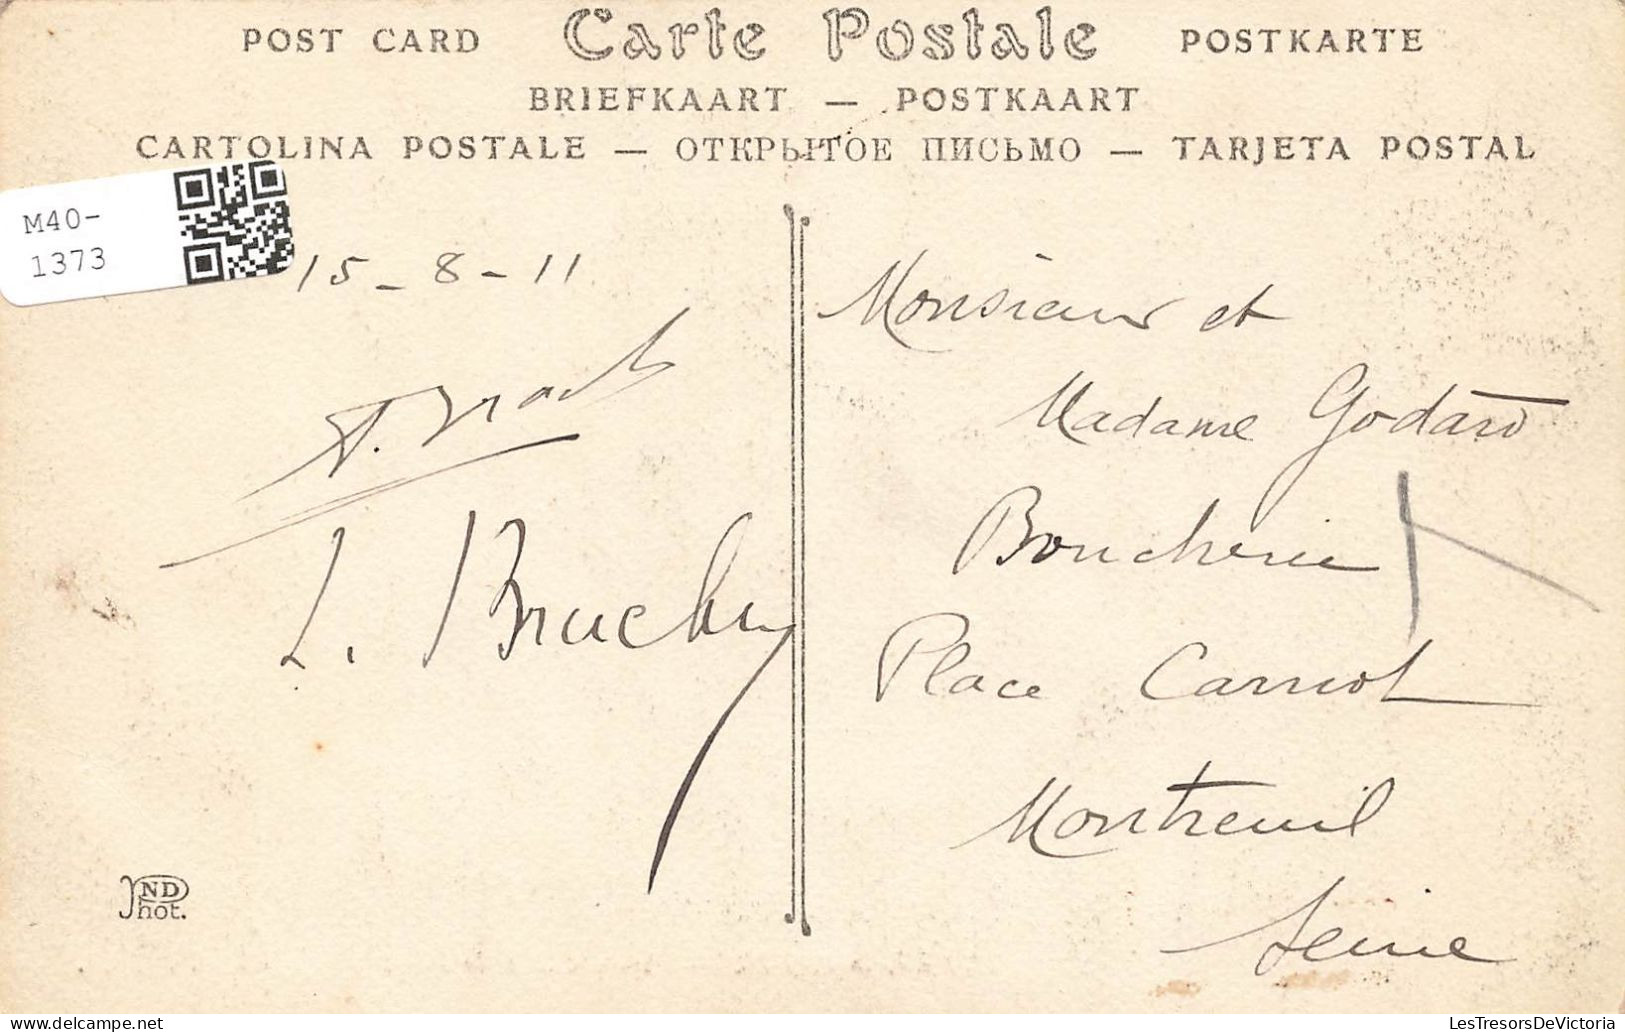 POST CARD Carte Postale POSTKARTE
BRIEFKAART — POSTKAART
CARTOLINA POSTALE — ОТКРЫТОЕ ПИСЬМО — TARJETA POSTAL
M40-
1373
15-8-11
Monsieur et
Madame Godard
Boucherie
Place Carnot
Montreuil
Seine
A.
L.
ND
Phot.
LesTresorsDeVictoria